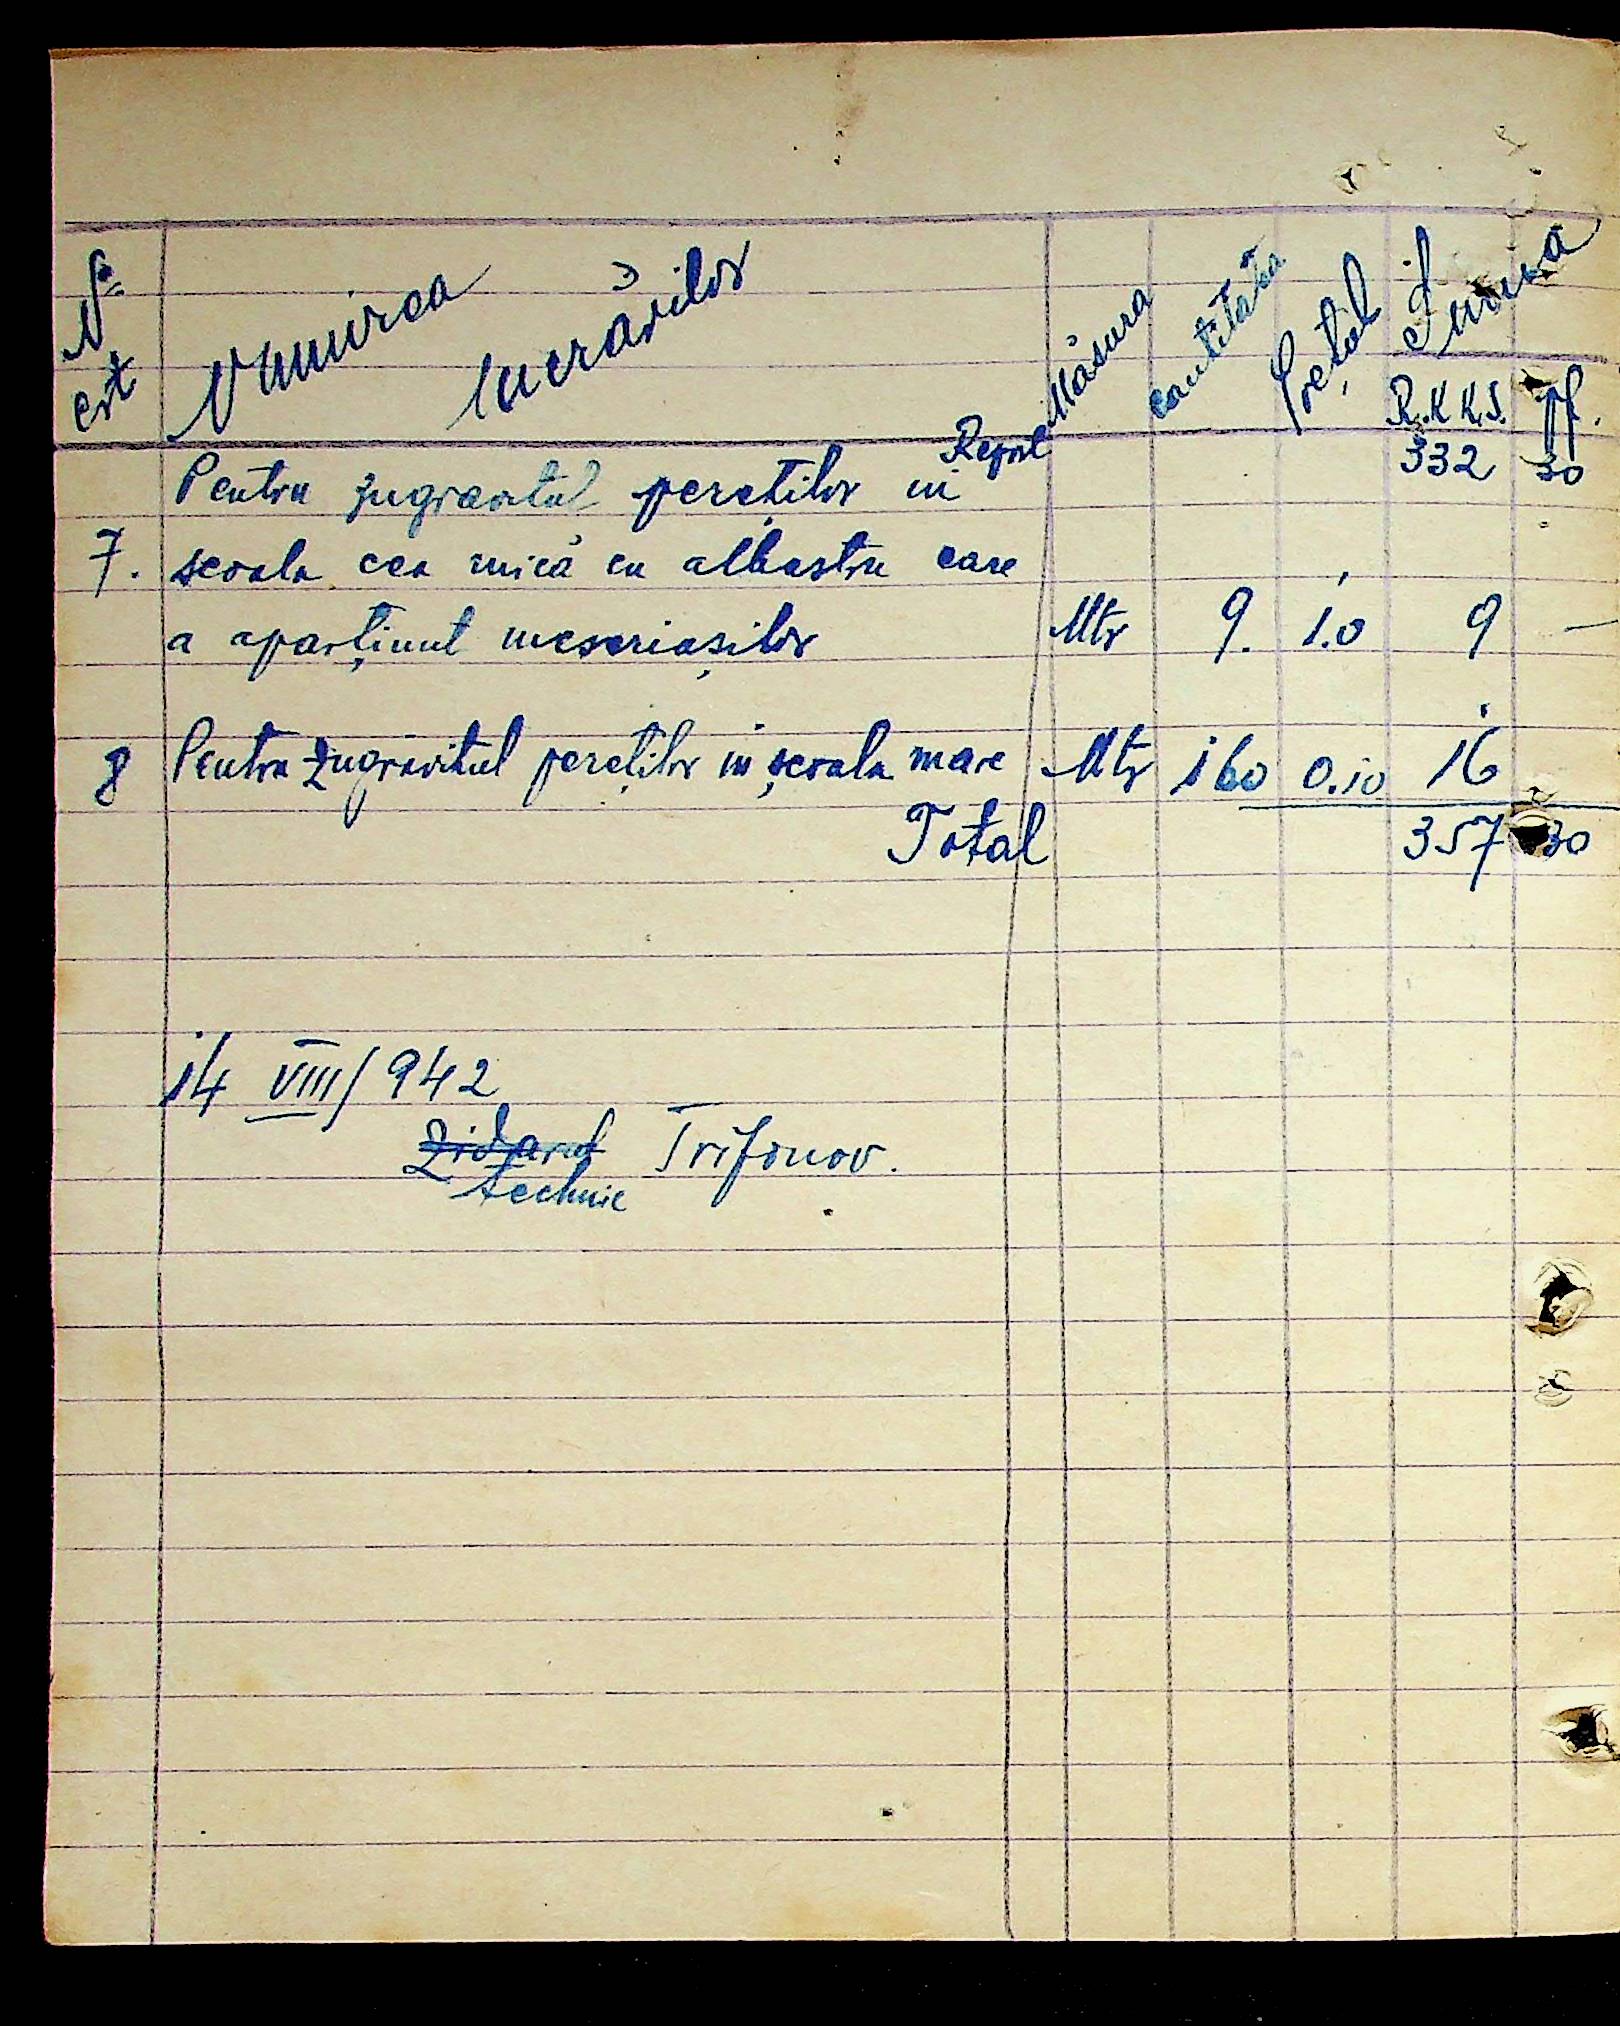 № crt Numirea lucrărilor Măsura cantitatea Prețul Suma
R.K.K.S. pf.
Report 332 30
Pentru zugravitul pereților in
7. scoala cea mică cu albastru care
a aparținut meseriașilor Mtr 9. 1.0 9 —
8 Pentru zugravitul pereților in școala mare Mtr 160 0.10 16
Total 357 30
14 VIII/942
Zidarul Trifonov.
technic